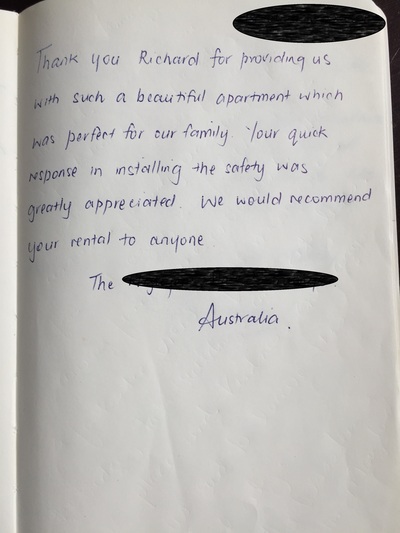 Thank you Richard for providing us
with such a beautiful apartment which
was perfect for our family. Your quick
response in installing the safety was
greatly appreciated. We would recommend
your rental to anyone
The
Australia.